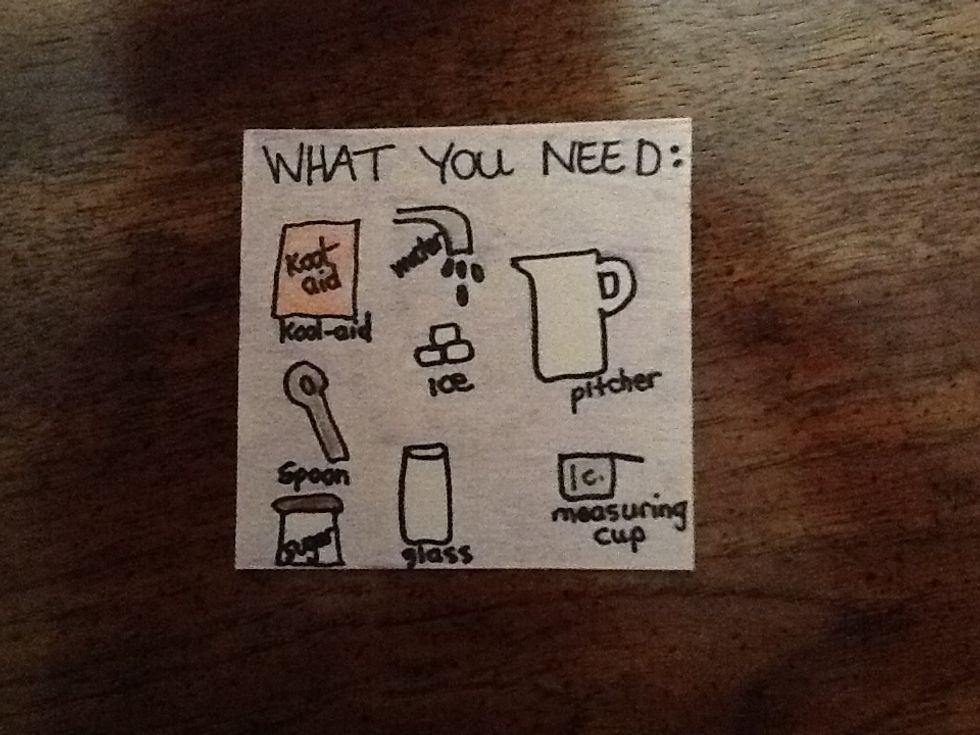 WHAT YOU NEED:
Kool
aid
Kool-aid
water
ice
pitcher
Spoon
sugar
glass
1c.
measuring
cup